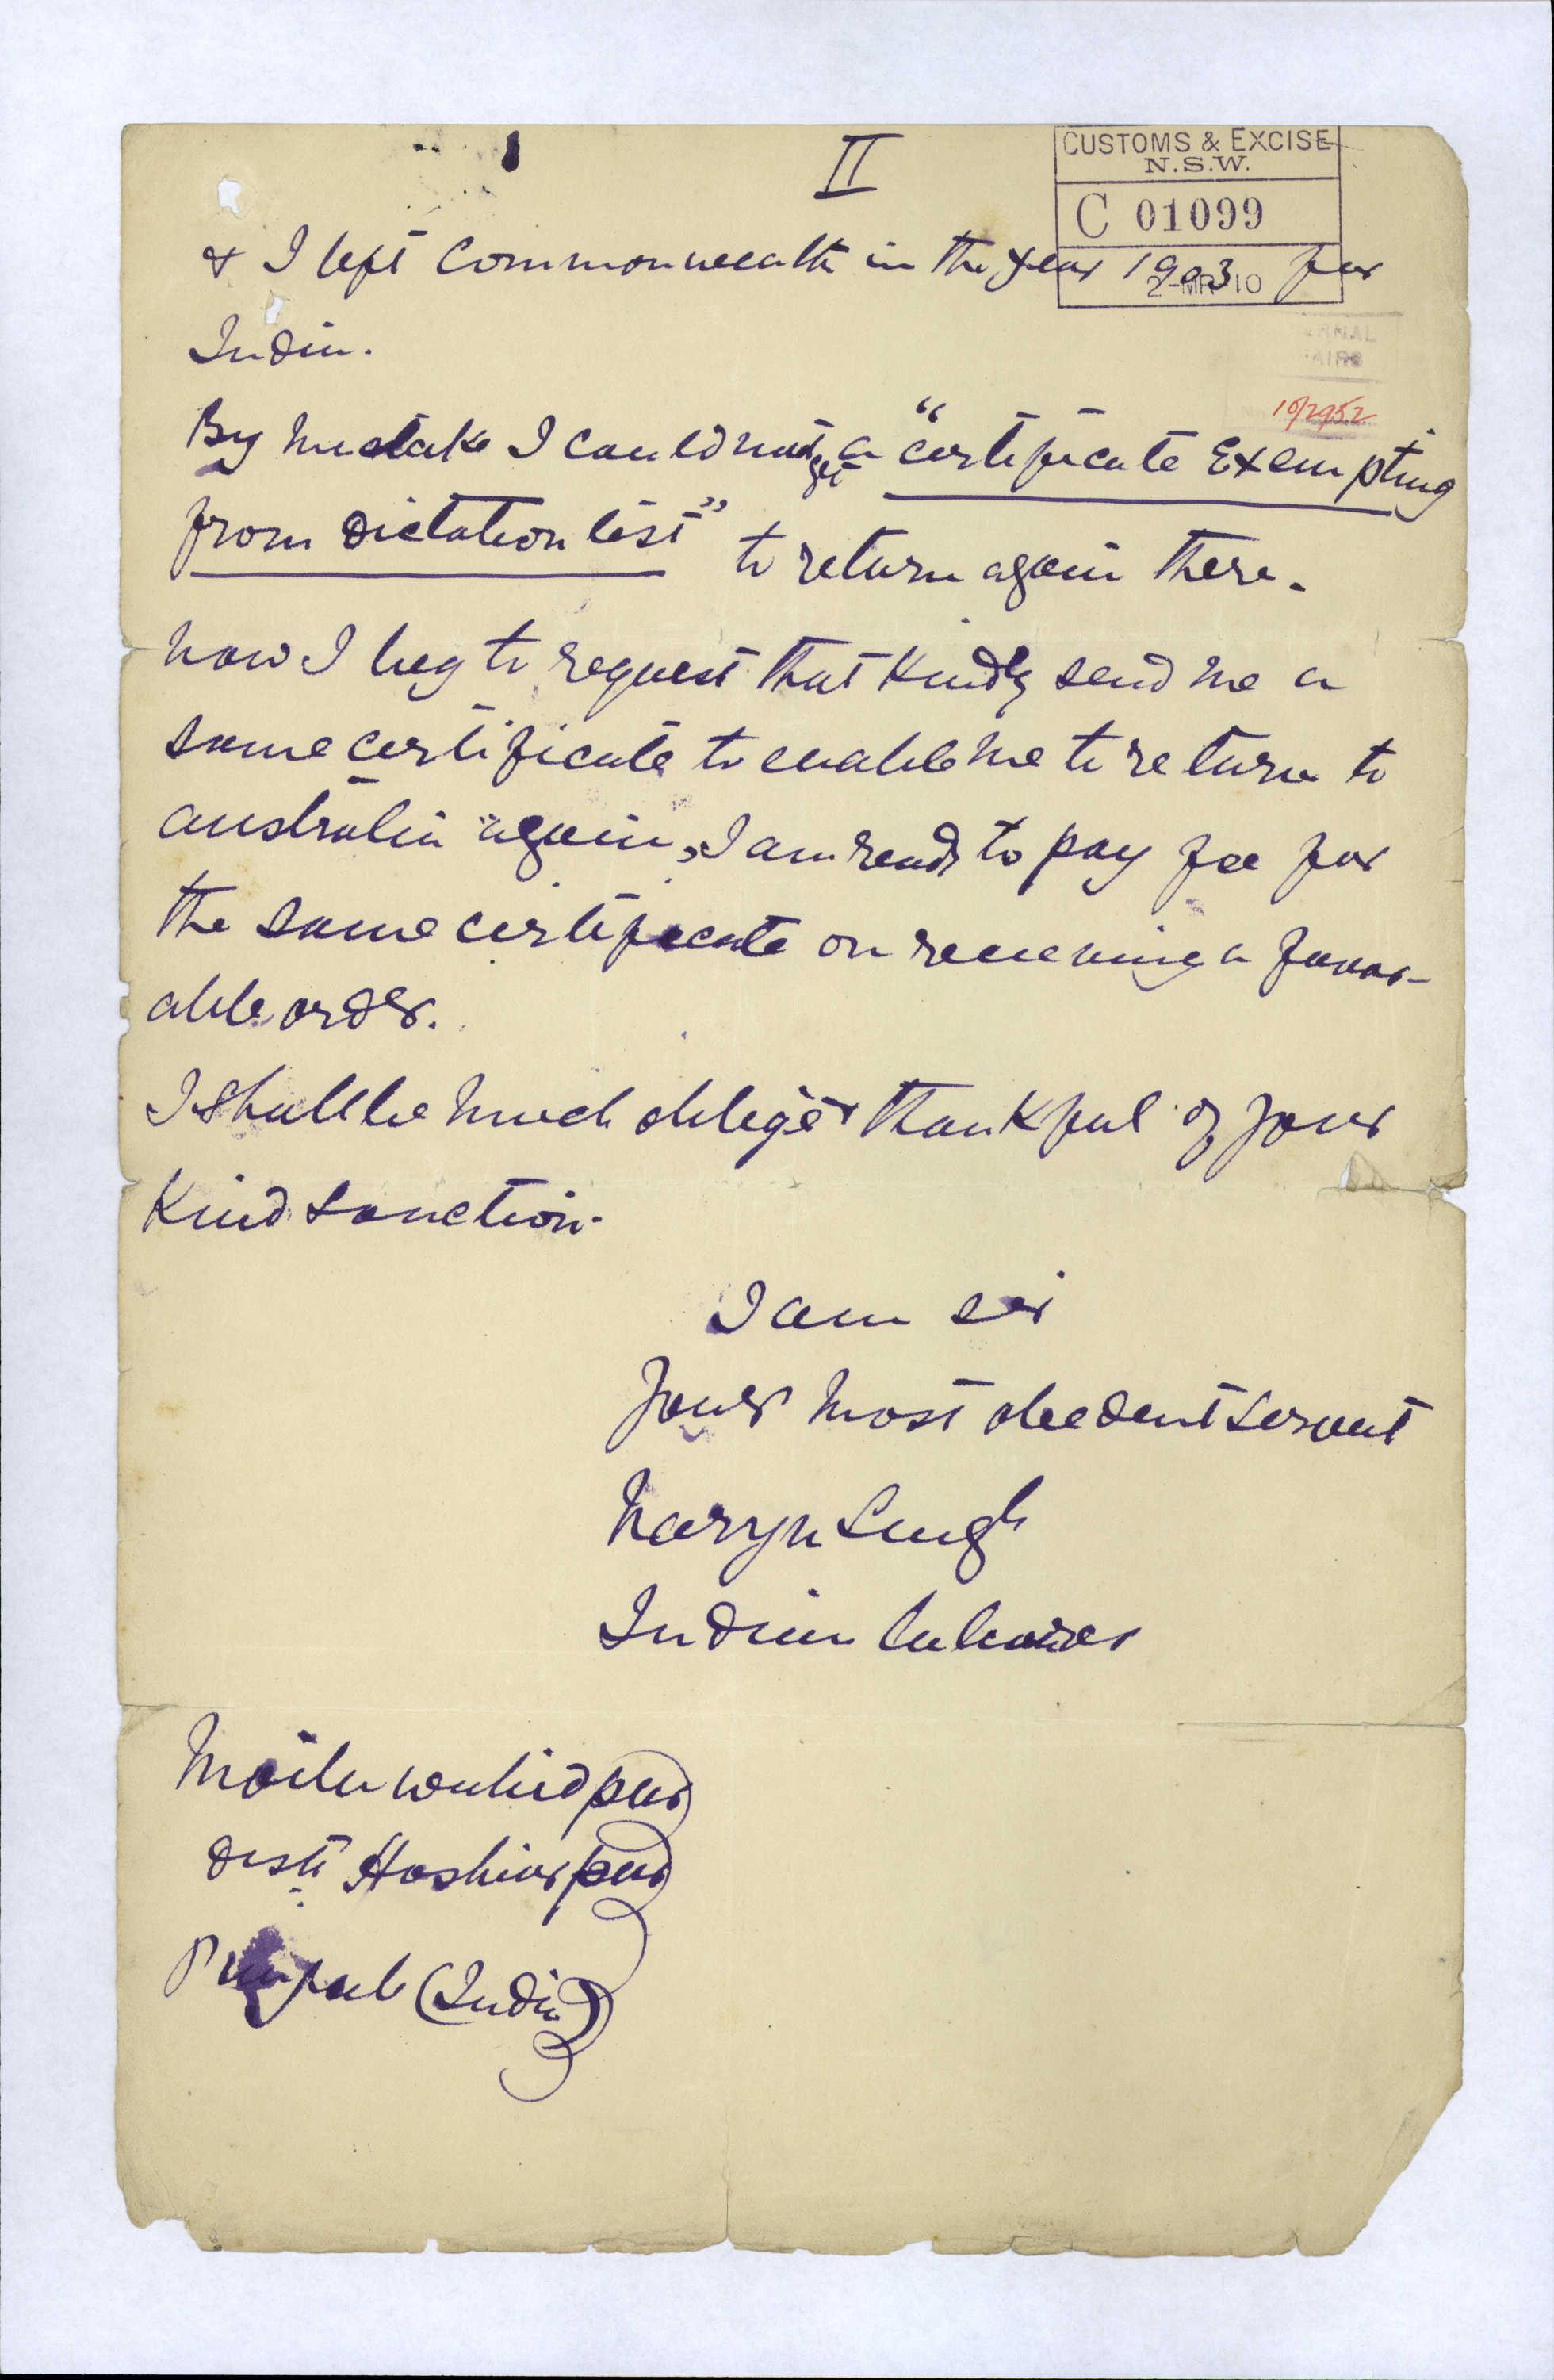 II
CUSTOMS & EXCISE
N.S.W.
C 01099
2-MR 10
& I left Commonwealth in the year 1903 for
India.
10/2952
By mistake I could not get a "certificate Exempting
from dictation test" to return again there.
now I beg to request that Kindly send me a
same certificate to enable me to return to
australia again, I am ready to pay fee for
the same certificate on receiving a favor-
able order.
I shall be much oblige & thankful of your
Kind sanction.
I am sir
Your most obedent servent
Naryn Singh
Indian
wahidpur
distt Hoshiarpur
Punjab (India)